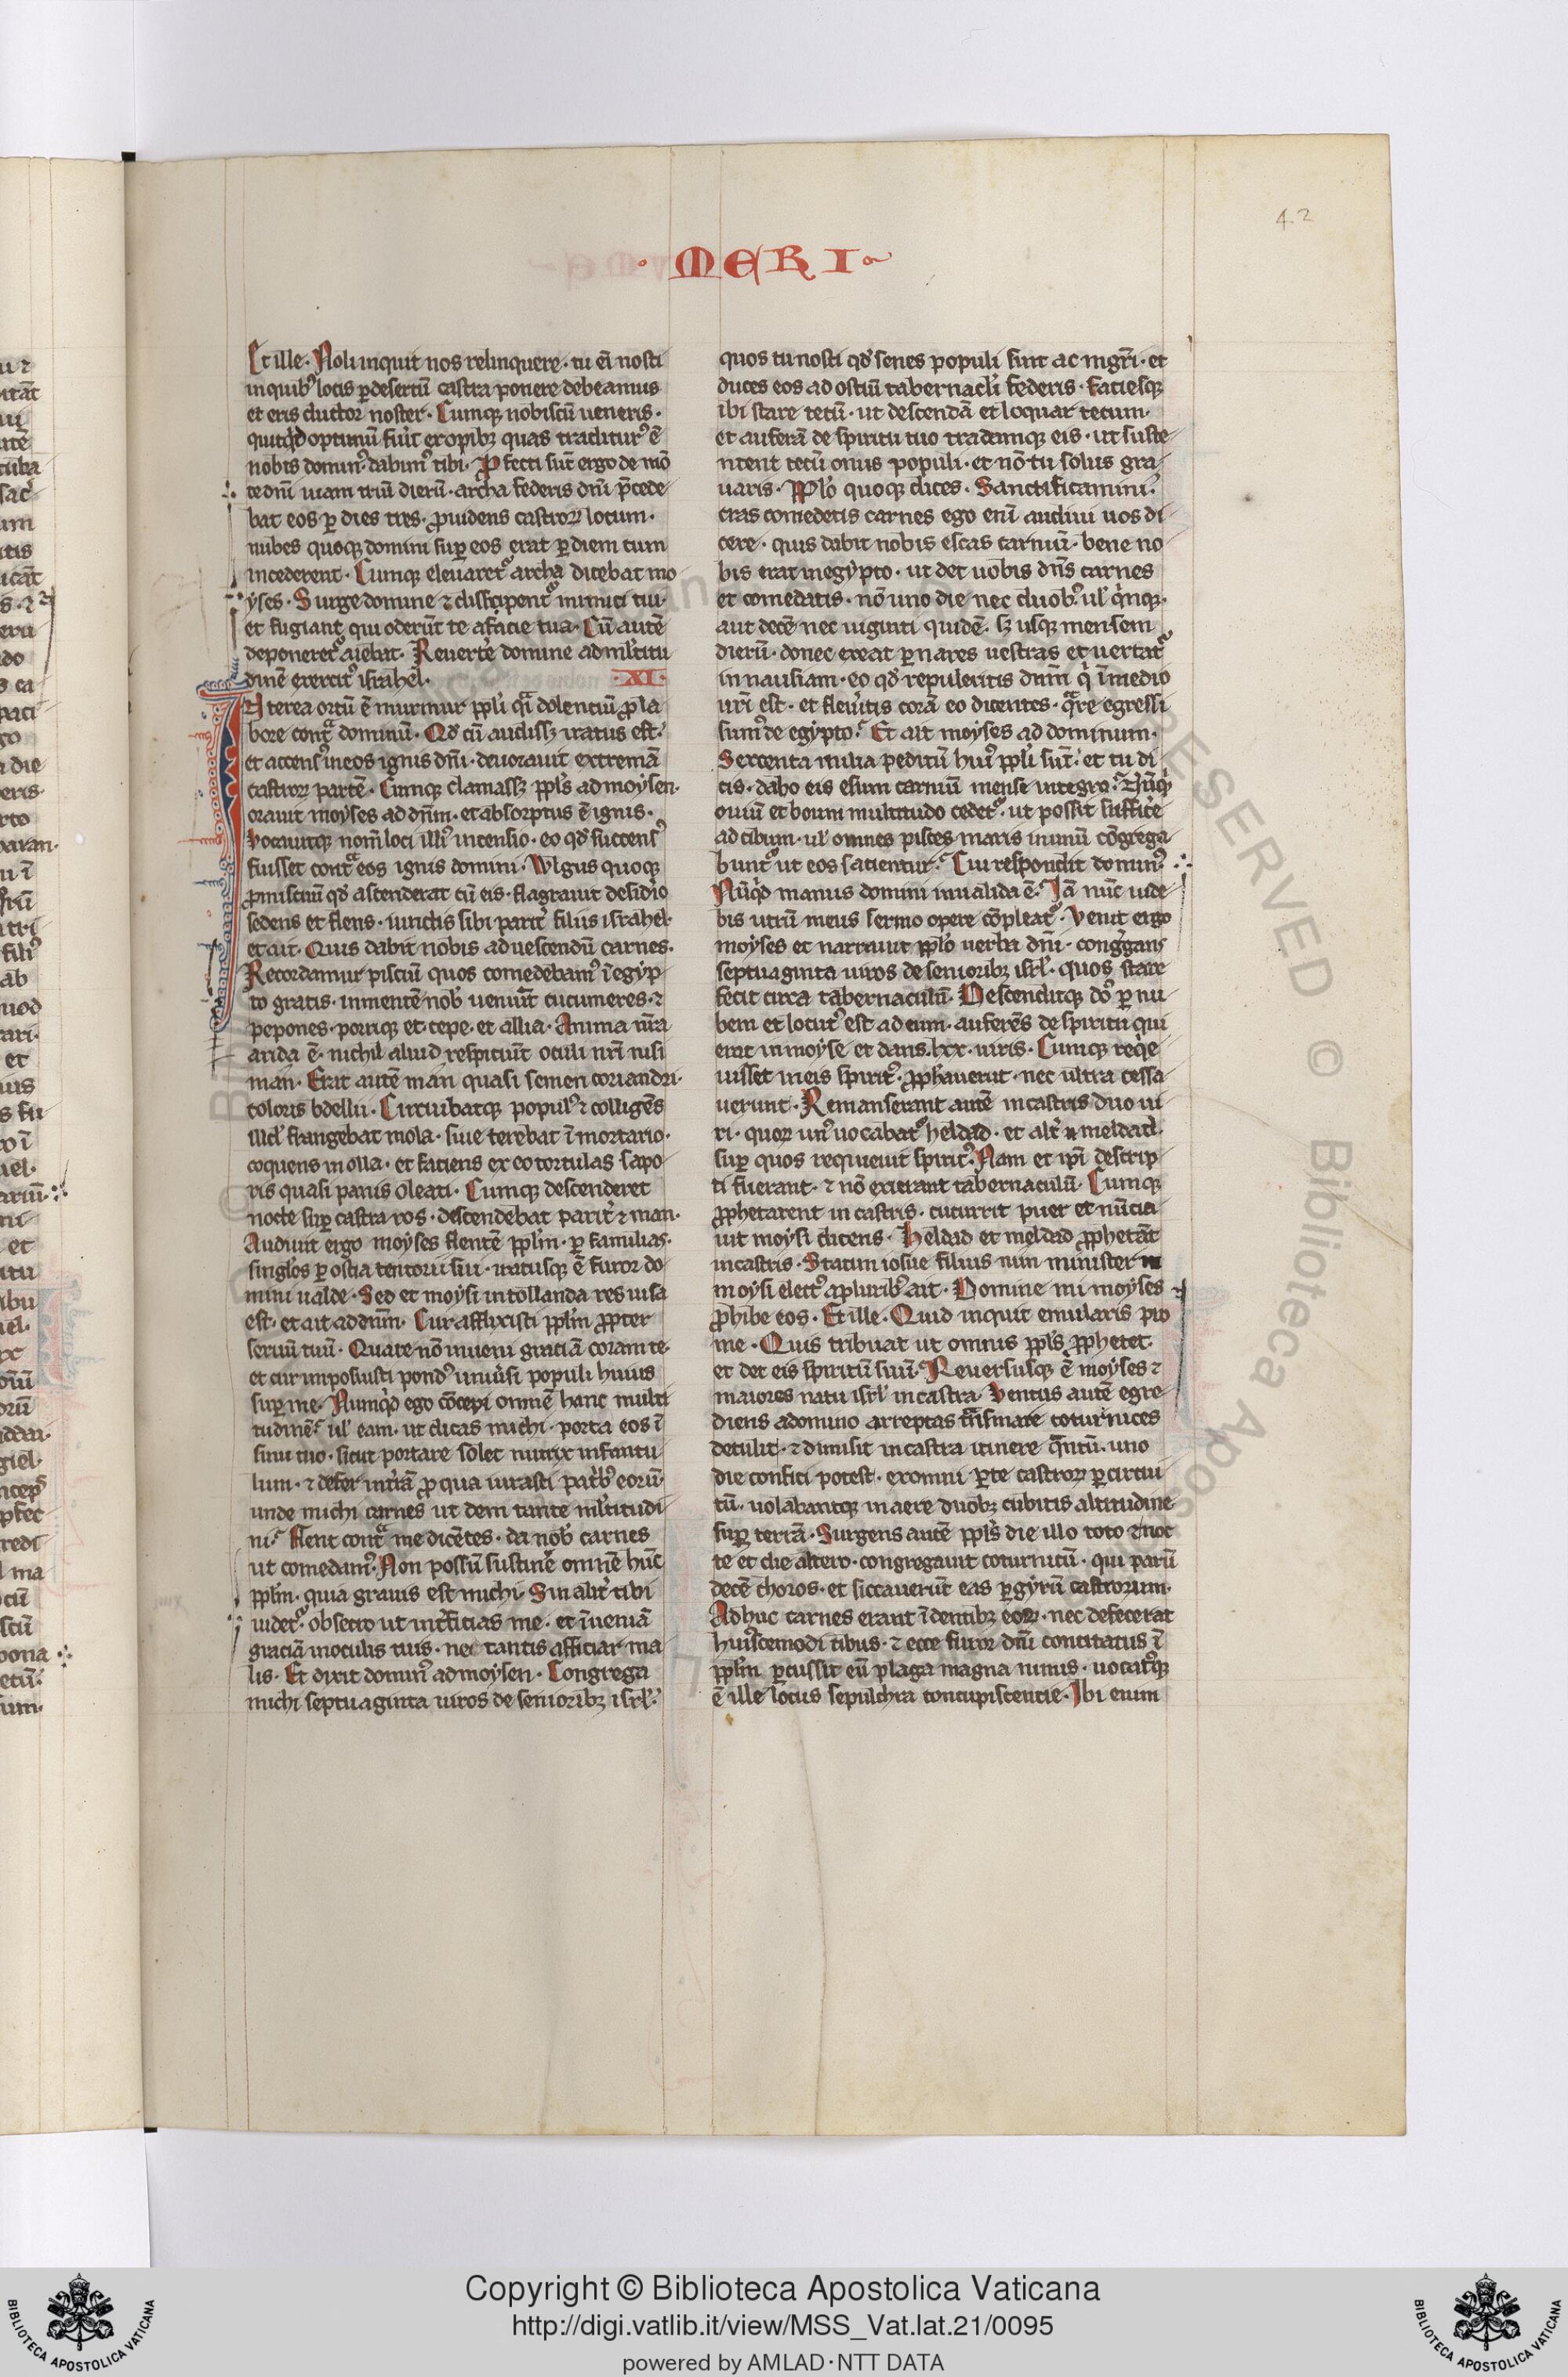 42
· MERI
Et ille · Noli inquit nos relinquere · tu eī nosti
in quibꝰ locis ꝑ desertū castra ponere debeamus
et eris ductor noster · Cumqꝫ nobiscū ueneris ·
quitqͥd optimū fuīt ex opibꝫ quas traditurꝰ ē
nobis dominꝰ dabimꝰ tibi · Pfecti sūt ergo de mō
te dn̄i uiam triū dierū · archa federis dn̄i p̄cede
bat eos ꝑ dies tres · ꝓuidens castroꝝ locum ·
nubes quoqꝫ domini suꝑ eos erat ꝑ diem cum
incederent · Cumqꝫ eleuaret᷒ archa dicebat mo
yses · Surge domine ⁊ dissipent᷒ inimici tui ·
et fugiant qui oderūt te a facie tua · Cū autē
deponeret᷒ aiebat · Reuerte domine ad ml̄titu
dinē exercitꝰ israhel ·
·XI·
Nterea ortū ē murmur pp̄li qͣi dolentiū ꝓ la
bore contͣ dominū · Qd̄ cū audissꝫ iratus est ·
et accensꝰ in eos ignis dn̄i · deuorauit extremā
castroꝝ partē · Cumqꝫ clamassꝫ pp̄ls ad moysen ·
orauit moyses ad dn̄m · et absorptus ē ignis ·
Vocauitqꝫ nom̄ loci illiꝰ incensio · eo qd̄ succensꝰ
fuisset contͣ eos ignis domini · Wlgus quoqꝫ
ꝓmiscuū qd̄ ascenderat cū eis · flagrauit desidͥo
sedens et flens · iunctis sibi parit̄ filiis israhel ·
et ait · Quis dabit nobis ad uescendū carnes ·
Recordamur pisciū quos comedebamꝰ ī egyp
to gratis · in mentē nob̄ ueniūt cucumeres · ⁊
pepones · porrique et cepe · et allia · Anima nr̄a
arida ē · nichil aliud respiciūt oculi nr̄i nisi
man · Erat autē man quasi semen coriandri ·
coloris bdellii · Circuibatqꝫ populꝰ ⁊ colligēs
illd̄ frangebat mola · siue terebat ī mortario ·
coquens in olla · et faciens ex eo tortulas sapo
ris quasi panis oleati · Cumqꝫ descenderet
nocte suꝑ castra ros · descendebat parit̄ ⁊ man ·
Audiuit ergo moyses flentē pp̄lm · ꝑ familias ·
singl̄os ꝑ ostia tentorii sui · iratusqꝫ ē furor do
mini ualde · Sed et moysi intollanda res uisa
est · et ait ad dn̄m · Cur afflixisti pp̄lm ꝓpter
seruū tuū · Quare nō inueni gratiā coram te ·
et cur imposuisti pondꝰ uniūsi populi huius
suꝑ me · Numqͥd ego cōcepi omnē hanc multi
tudinē · ul̄ eam · ut dicas michi · porta eos ī
sinu tuo · sicut portare solet nutrix infantu
lum · ⁊ defer in tr̄ā ꝓ qua iurasti patͥbꝰ eorū ·
unde michi carnes ut dem tante ml̄titudi
ni · Flent contͣ me dicētes · da nob̄ carnes
ut comedamꝰ · Non possū sustinē omnē hūc
pp̄lm · quia grauis est michi · Sin alit̄ tibi
uidet᷒ · obsecro ut int̄ficias me · et īueniā
gratiā in oculis tuis · nec tantis afficiar ma
lis · Et dixit dominꝰ ad moysen · Congrega
michi septuaginta uiros de senioribꝫ isrl̄ ·
quos tu nosti qd̄ senes populi sint ac mgr̄i · et
duces eos ad ostiū tabernacl̄i federis · faciesqꝫ
ibi stare tecū · ut descendā et loquar tecum ·
et auferā de spiritu tuo tradamqꝫ eis · ut suste
ntent tecū onus populi · et nō tu solus gra
uaris · Pp̄lo quoqꝫ dices · Sanctificamini ·
cras comedetis carnes ego eni audiui uos di
cere · quis dabit nobis escas carniū · bene no
bis erat in egypto · ut det uobis dn̄s carnes
et comedatis · nō uno die nec duobꝰ · ul̄ qͥnqꝫ ·
aut decē nec uiginti quidē · sꝫ usqꝫ mensem
dierū · donec exeat ꝑ nares uestras et uertat᷒
in nausiam · eo qd̄ repuleritis dn̄m qͥ ī medio
ur̄i est · et fleūitis corā eo dicentes · qͣre egressi
sumꝰ de egypto · Et ait moyses ad dominum ·
Sexcenta milia peditū huiꝰ pp̄li sūt · et tu di
cis · dabo eis esum carniū mense integro · Nūqͥd
ouiū et boum multitudo cedet᷒ · ut possit sufficē
ad cibum · ul̄ omnes pisces maris inunū cōgrega
bunt᷒ ut eos satientur · Cui respondit dominꝰ ·
Nūqͥd manus domini inualida ē · Iā nūc uide
bis utrū meus sermo opere cōpleat᷒ · Venit ergo
moyses et narrauit pp̄lo uerba dn̄i · congͥgans
septuaginta uiros de senioribꝫ isrl̄ · quos stare
fecit circa tabernaculū · Descenditqꝫ dō ꝑ nu
bem et locutꝰ est ad eum · auferēs de spiritu qui
erat in moyse et dans · lxx · uiris · Cumqꝫ reqͥe
uisset in eis spiritꝰ · ꝓph̄auerūt · nec ultra cessa
uerunt · Remanserant autē in castris duo ui
ri · quoꝝ unꝰ uocabat᷒ heldad · et alt̄ meldad ·
suꝑ quos requieuit spiritꝰ · Nam et ip̄i descrip
ti fuerant · ⁊ nō exierant tabernaculū · Cumqꝫ
ꝓphetarent in castris · cucurrit puer et nūcia
uit moysi dicens · Heldad et meldad ꝓphetāt
in castris · Statim iosue filius nun minister
moysi electꝰ a pluribꝰ ait · Domine mi moyses
ꝓhibe eos · Et ille · Quid inquit emularis pro
me · Quis tribuat ut omnis pp̄ls ꝓphetet ·
et det eis spiritū suū · Reuersusqꝫ ē moyses ⁊
maiores natu isrl̄ in castra · Ventus autē egre
diens a domino arreptas tͣnsmare coturnices
detulit · ⁊ dimisit in castra itinere qͣntū · uno
die confici potest · ex omni ꝑte castroꝝ ꝑ circui
tū · uolabantqꝫ in aere duobꝫ cubitis altitudine
suꝑ terrā · Surgens autē pp̄ls die illo toto ⁊ noc
te et die altero · congregauit coturnicū · qui parū
decē choros · et siccauerūt eas ꝑ gyrū castrorum ·
Adhuc carnes erant ī dentibꝫ eoꝝ · nec defecerat
huiꝰscemodi cibus · ⁊ ecce furor dn̄i concitatus ī
pp̄lm ꝑcussit eū plaga magna nimis · uocatꝰqꝫ
ē ille locus sepulchra concupiscentie · Ibi enim
Copyright © Biblioteca Apostolica Vaticana
http://digi.vatlib.it/view/MSS_Vat.lat.21/0095
powered by AMLAD·NTT DATA
BIBLIOTECA APOSTOLICA VATICANA
BIBLIOTECA APOSTOLICA VATICANA